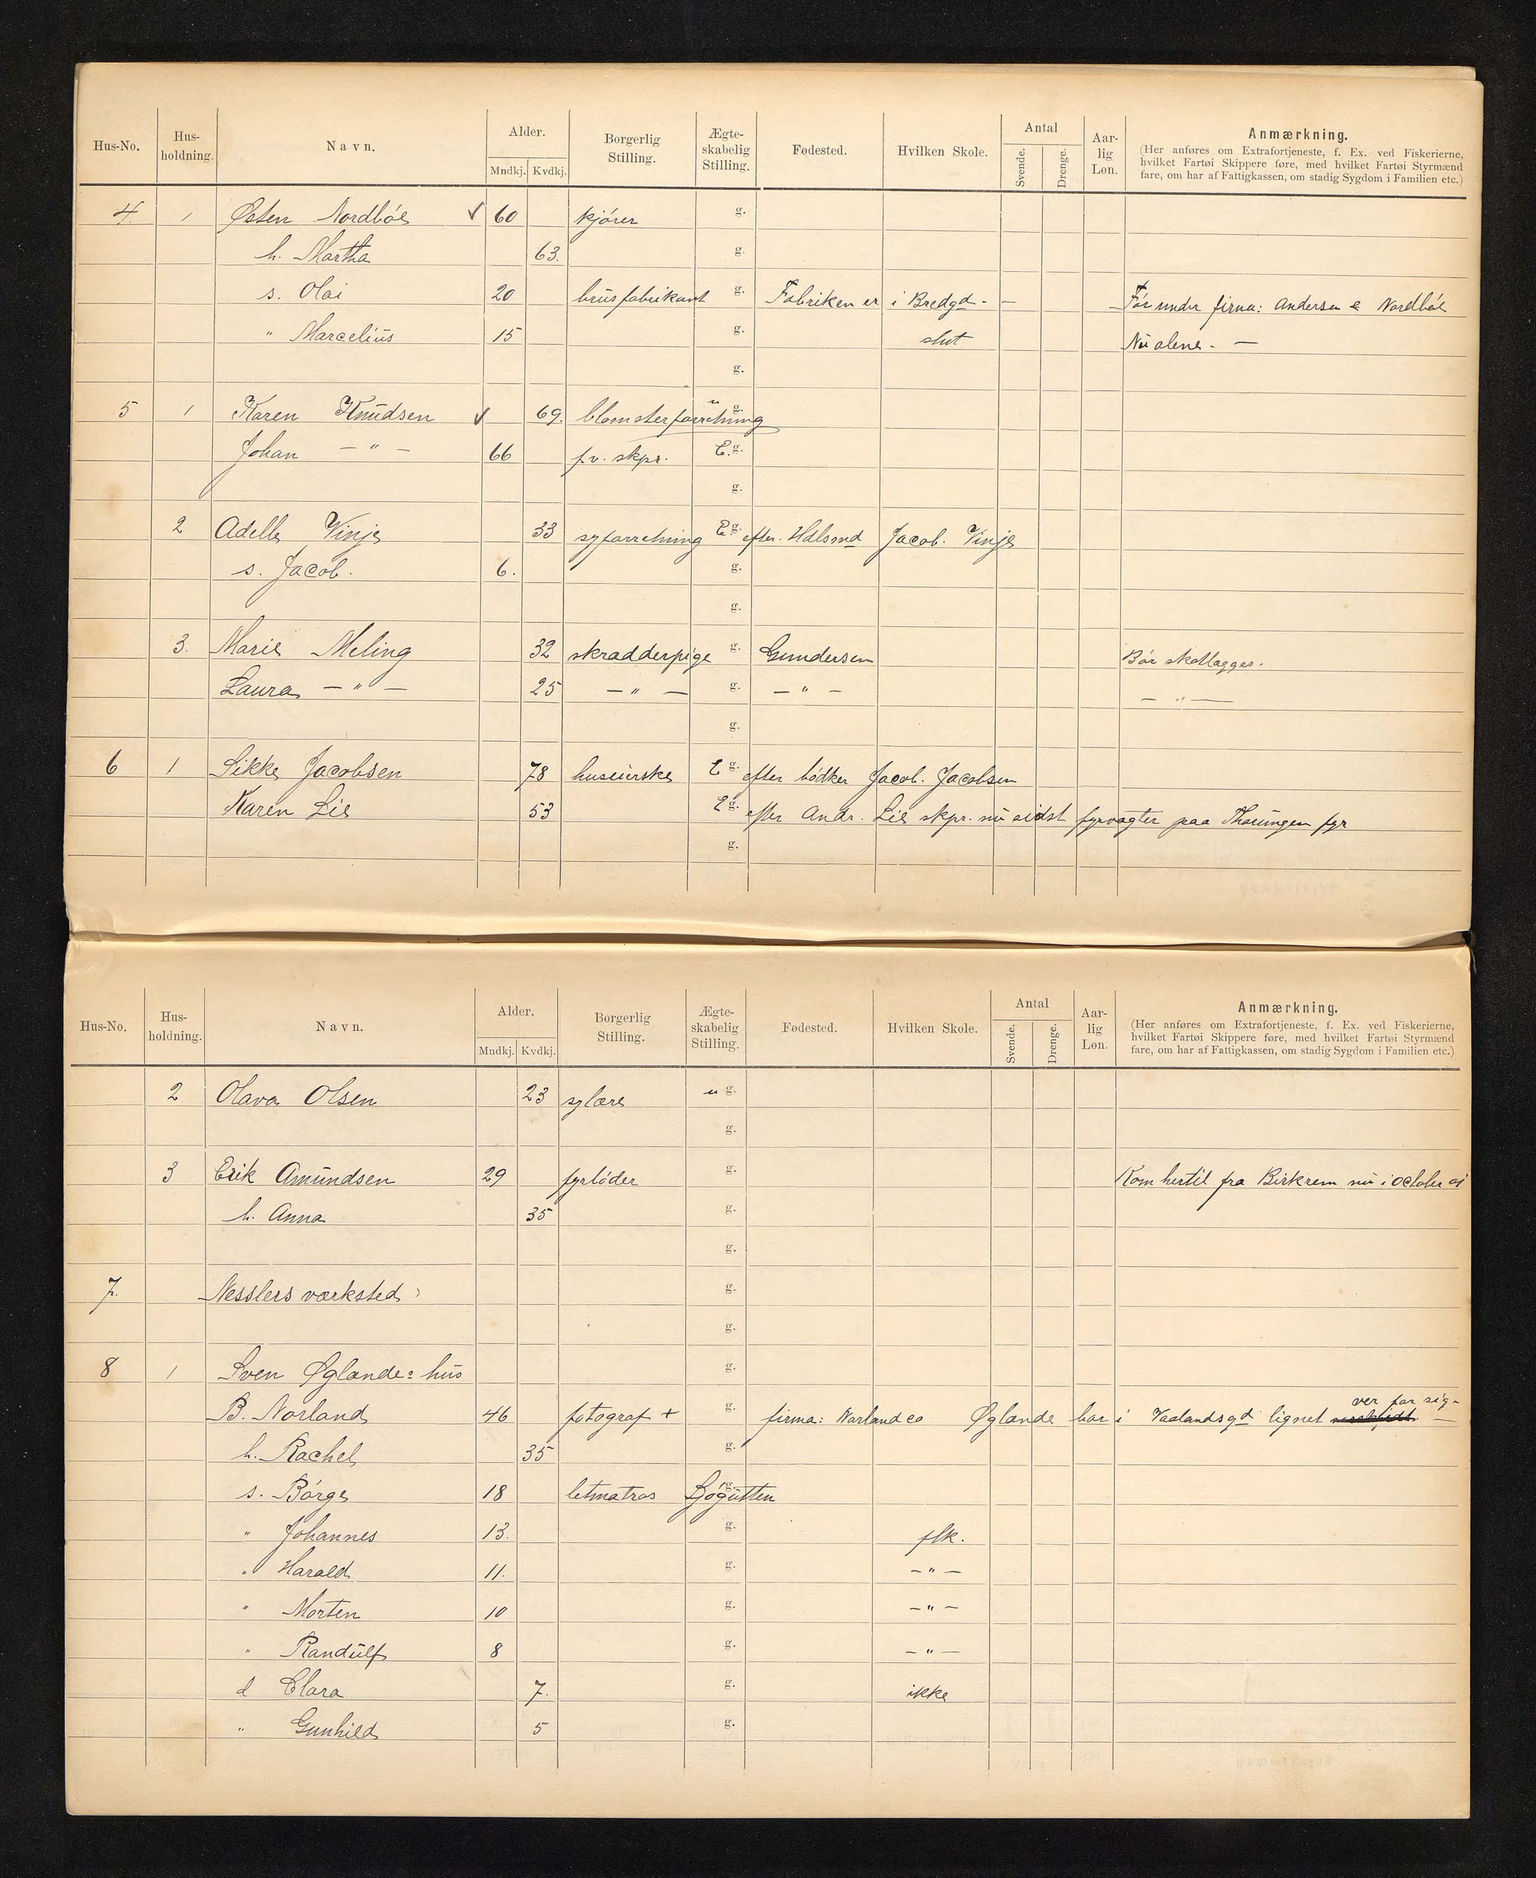 Hus-No. Hus-holdning. Navn. Alder. Mndkj. Kvdkj. Borgerlig Stilling. Ægte-skabelig Stilling. Fødested. Hvilken Skole. Antal Svende. Drenge. Aar-lig Løn. Anmærkning.
(Her anføres om Extrafortjeneste, f. Ex. ved Fiskerierne,
hvilket Fartøi Skippere føre, med hvilket Fartøi Styrmænd
fare, om har af Fattigkassen, om stadig Sygdom i Familien etc.)
4. 1 Østen Nordbøe ✓ 60 kjører g.
h. Martha 63. g.
s. Olai 20 brusfabrikant g. Fabriken er i Bredgd - - Før under firma: Andersen & Nordbøe
" Marcelius 15 g. slut Nu alene. —
g.
5 1 Karen Knudsen ✓ 69. blomsterforretning u g.
Johan — " — 66 fv. skpr. E. g.
g.
2 Adelle Vinje 33 syforretning E g. efter. Hdlsmd Jacob. Vinje
s. Jacob. 6. g.
g.
3. Marie Meling 32 skrædderpige g. Gundersen Bør skatlægges.
Laura — " — 25 — " — g. — " — — " —
g.
6 1 Sikke Jacobsen 78 huseierske E g. efter bødker Jacob. Jacobsen
Karen Lie 53 E g. efter Andr. Lie skpr. nu sidst fyrvogter paa Thorungen fyr
g.
Hus-No. Hus-holdning. Navn. Alder. Mndkj. Kvdkj. Borgerlig Stilling. Ægte-skabelig Stilling. Fødested. Hvilken Skole. Antal Svende. Drenge. Aar-lig Løn. Anmærkning.
(Her anføres om Extrafortjeneste, f. Ex. ved Fiskerierne,
hvilket Fartøi Skippere føre, med hvilket Fartøi Styrmænd
fare, om har af Fattigkassen, om stadig Sygdom i Familien etc.)
2 Olava Olsen 23 sylære u g.
g.
3 Erik Amundsen 29 fyrbøder g. Kom hertil fra Birkrem nu i october
h. Anna 35 g.
g.
7. Nesslers værksted g.
g.
8 1 Sven Øglænde: hus g.
B. Norland 46 fotograf + g. firma: Norland co Øglænde bor i Vaalandsgd lignet ver for sig -
h. Rachel 35 g.
s. Børge 18 letmatros g. Sjøgutten
" Johannes 13. g. flk.
" Harald 11. g. — " —
" Morten 10 g. — " —
" Randulf 8 g. — " —
d Clara 7. g. ikke
" Gunhild 5 g.